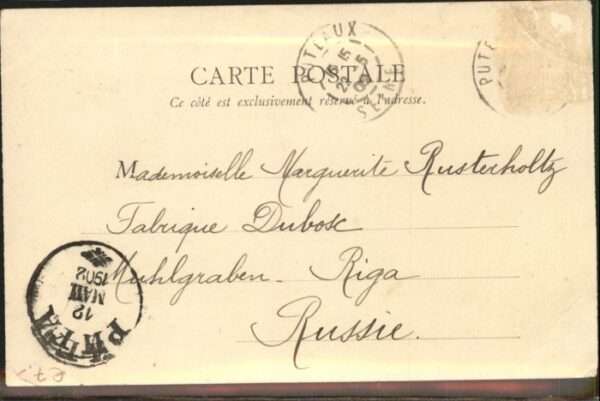 CARTE POSTALE
Ce côté est exclusivement réservé à l'adresse.
PUTEAUX
SEINE
PUTE
Mademoiselle Marguerite Rusterholtz
Fabrique Dubosc
Muhlgraben - Riga
Russie.
РИГА
12
МАЙ
1902